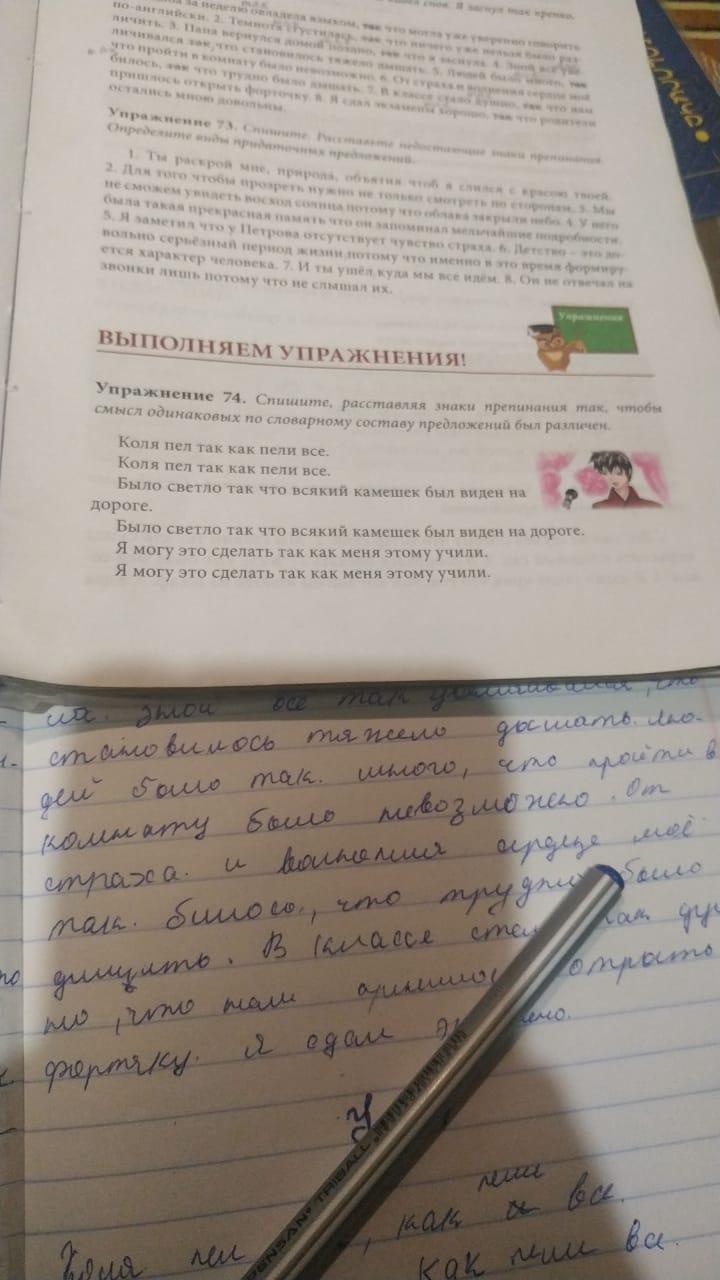 по-английски. 2. Темнота сгустилась, так что ничего уже нельзя было раз-
личить. 3. Папа вернулся домой поздно, так что я заснула. 4. Зной все уси-
ливался так, что становилось тяжело дышать. 5. Людей было много, так
что пройти в комнату было невозможно. 6. От страха и волнения сердце моё
билось, так что трудно было дышать. 7. В классе стало душно, так что нам
пришлось открыть форточку. 8. Я сдал экзамены хорошо, так что родители
остались мною довольны.
Упражнение 73. Спишите. Расставьте недостающие знаки препинания.
Определите виды придаточных предложений.
1. Ты раскрой мне, природа, объятия чтоб я слился с красою твоей.
2. Для того чтобы прозреть нужно не только смотреть по сторонам. 3. Мы
не сможем увидеть восход солнца потому что облака закрыли небо. 4. У него
была такая прекрасная память что он запоминал мельчайшие подробности.
5. Я заметил что у Петрова отсутствует чувство страха. 6. Детство – это до-
вольно серьёзный период жизни потому что именно в это время формиру-
ется характер человека. 7. И ты ушёл куда мы все идём. 8. Он не отвечал на
звонки лишь потому что не слышал их.
Упражнения
ВЫПОЛНЯЕМ УПРАЖНЕНИЯ!
Упражнение 74. Спишите, расставляя знаки препинания так, чтобы
смысл одинаковых по словарному составу предложений был различен.
Коля пел так как пели все.
Коля пел так как пели все.
Было светло так что всякий камешек был виден на
дороге.
Было светло так что всякий камешек был виден на дороге.
Я могу это сделать так как меня этому учили.
Я могу это сделать так как меня этому учили.
ла. Зной все так
становилось тяжело дышать. Лю-
дей было так. много, что пройти в
комнату было невозможно. От
страха. и волнения сердце моё
так. билось, что трудно было
дышать. В классе так
но, что нам открыть
форточку. Я сдал
PENSAN TRIBALL
пели
Коля пел , как все.
как пели все.